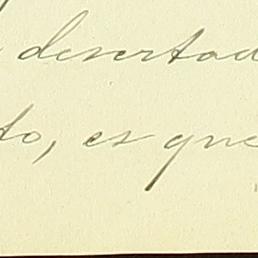 desertad
to, es que